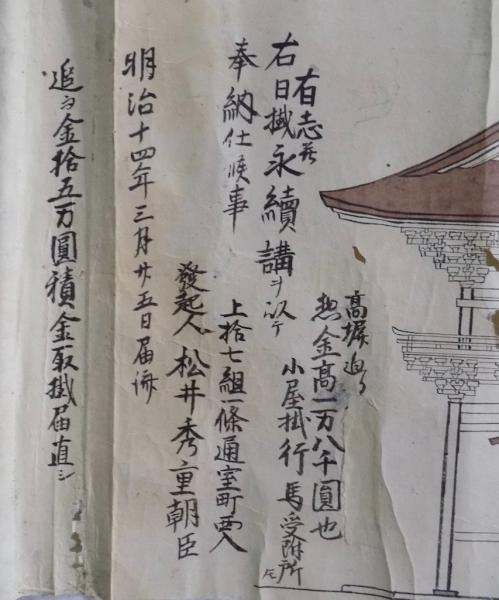 高塀迫り
惣金高一万八千圓也
小屋掛行馬受附所
有志者
右日掛永續講ヲ以テ
奉納仕候事
上拾七組一條通室町西入
發起人 松井秀重朝臣
明治十四年三月廿五日届済
追而金拾五万圓積金取掛届直シ